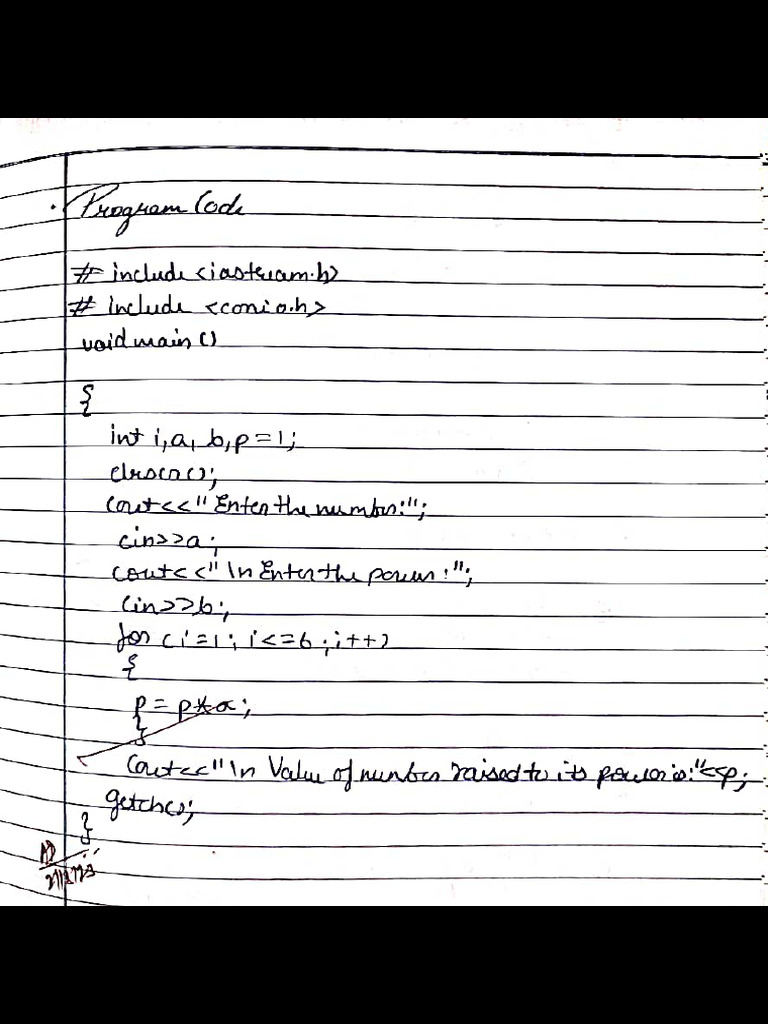 Program Code
# include <iostream.h>
# include <conio.h>
void main ()
{
int i,a, b,p=1;
clrscr();
cout<<"Enter the number:";
cin>>a;
cout<<"\n Enter the power:";
cin>>b;
for (i=1; i<=b ;i++)
{
p = p*a;
}
cout<<"\n Value of number raised to its power is:"<<p;
getch();
}